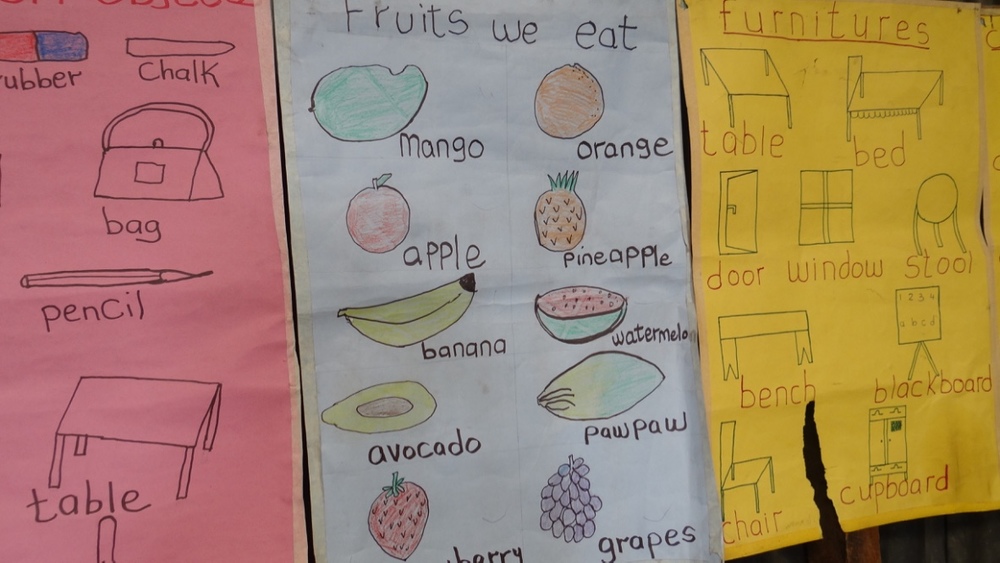 rubber
Chalk
bag
pencil
table
Fruits we eat
mango
orange
apple
pineapple
banana
watermelon
avocado
pawpaw
berry
grapes
furnitures
table
bed
door
window
stool
1 2 3 4
a b c d
bench
blackboard
chair
cupboard